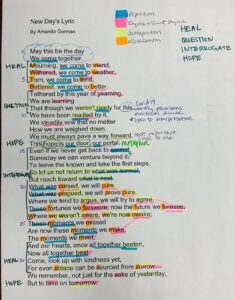 New Day's Lyric
By Amanda Gorman
HEAL
QUESTION
INTERROGATE
HOPE
May this be the day
We come together.
HEAL
Mourning, we come to mend,
Withered, we come to weather,
5 Torn, we come to tend,
Battered, we come to better.
Tethered by this year of yearning,
We are learning
QUESTION
That though we weren't ready for this,
10 We have been readied by it.
We steadily vow that no matter
How we are weighed down,
We must always pave a way forward.
HOPE
This hope is our door, our portal.
15 Even if we never get back to normal,
Someday we can venture beyond it,
To leave the known and take the first steps.
So let us not return to what was normal,
But reach toward what is next.
20 What was cursed, we will cure.
What was plagued, we will prove pure.
Where we tend to argue, we will try to agree,
Those fortunes we forswore, now the future we foresee,
Where we weren't aware, we're now awake;
25 Those moments we missed
Are now these moments we make,
The moments we meet,
And our hearts, once all together beaten,
Now all together beat.
HEAL
30 Come, look up with kindness yet,
For even solace can be sourced from sorrow.
We remember, not just for the sake of yesterday,
HOPE
But to take on tomorrow.